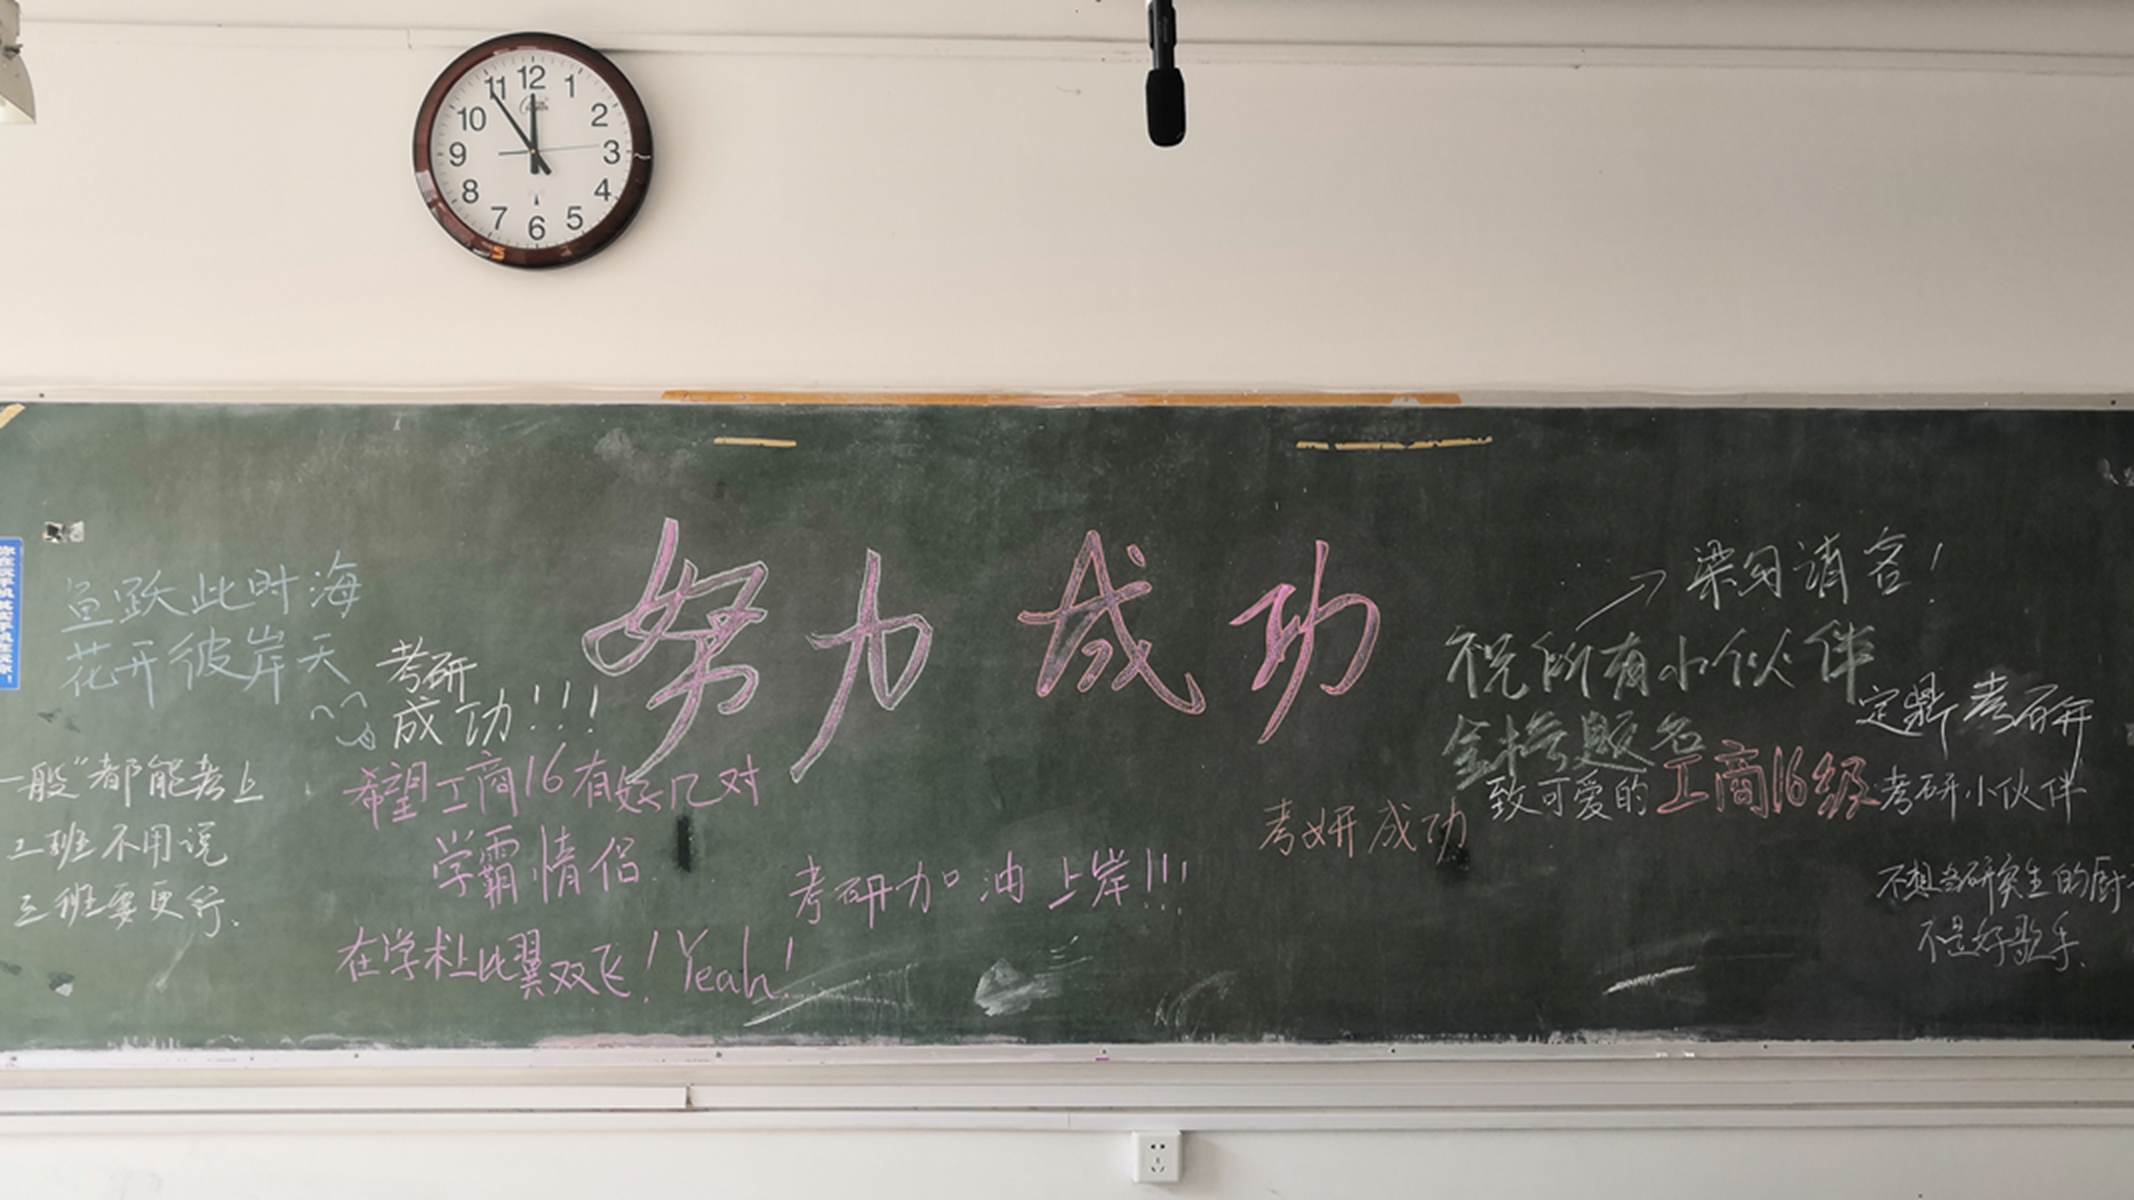 12
1
2
3
4
5
6
7
8
9
10
11
努力 成功
鱼跃此时海
花开彼岸天
考研
成功!!!
"一般"都能考上
二班不用说
三班要更行.
希望工商16有好几对
学霸情侣
在学术上比翼双飞!Yeah!
考研加油 上岸!!!
考妍成功
请客!
祝所有小伙伴
金榜题名
定鼎考研
致可爱的工商16级考研小伙伴
不想当研究生的厨
不是好歌手.